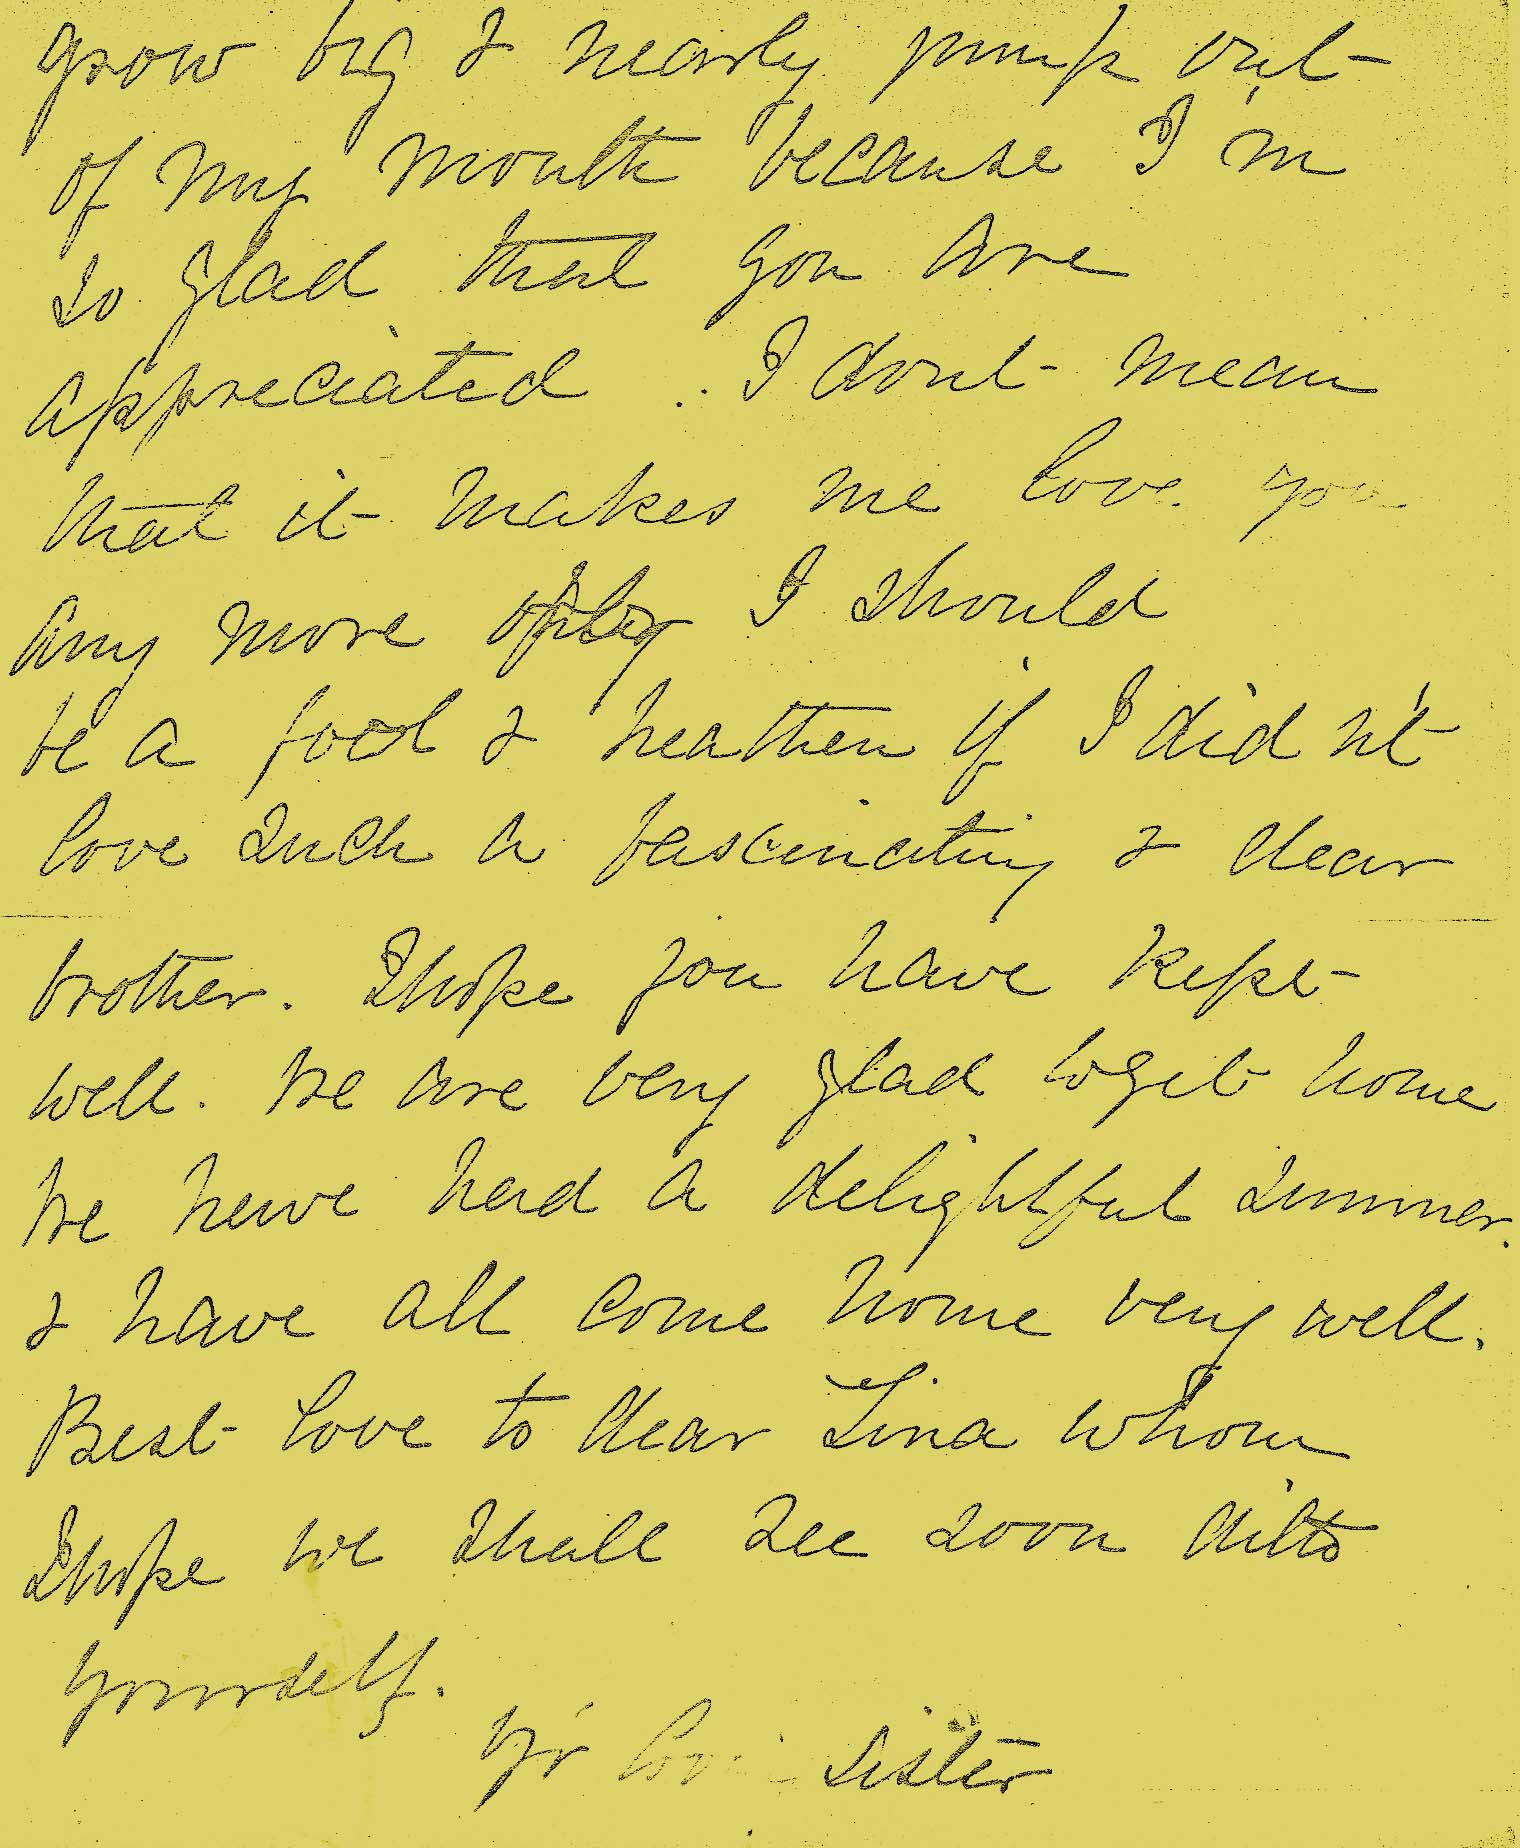 grow big & nearly jump out
of my mouth because I'm
so glad that you are
appreciated. I dont mean
that it makes me love you
any more I should
be a fool & heathen if I did n't
love such a fascinating & dear
brother. I hope you have kept
well. We are very glad to get home
We have had a delightful summer.
& have all come home very well.
Best love to dear Lina whom
I hope we shall see soon ditto
yourself.
Yr sister